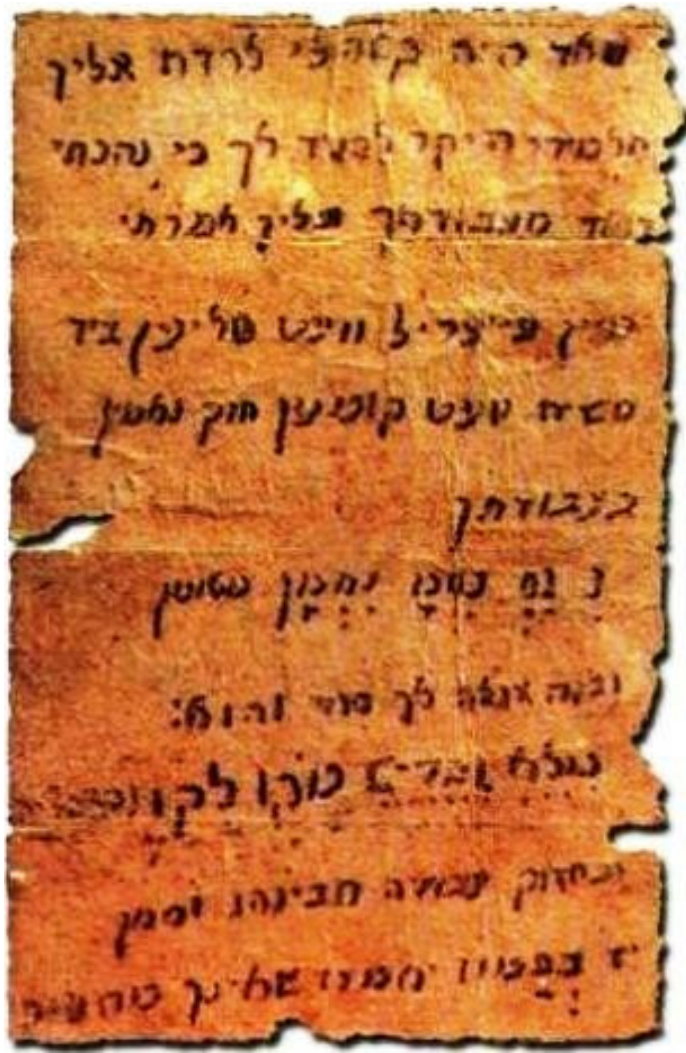 מאד היה קשה לי לרדת אליך
תלמידי היקר להגיד לך כי נהנתי
מאד מעבודתך ועליך אמרתי
מיין פייערל וועט טליען ביז
משיח וועט קומען חזק ואמץ
בעבודתך
נ נח נחמ נחמן מאומן
ובזה אגלה לך סוד והוא:
מלא וגדיש מקו לקו
ובחזוק עבודה תבינהו וסימן
יז בתמוז יאמרו שאינך מתענה